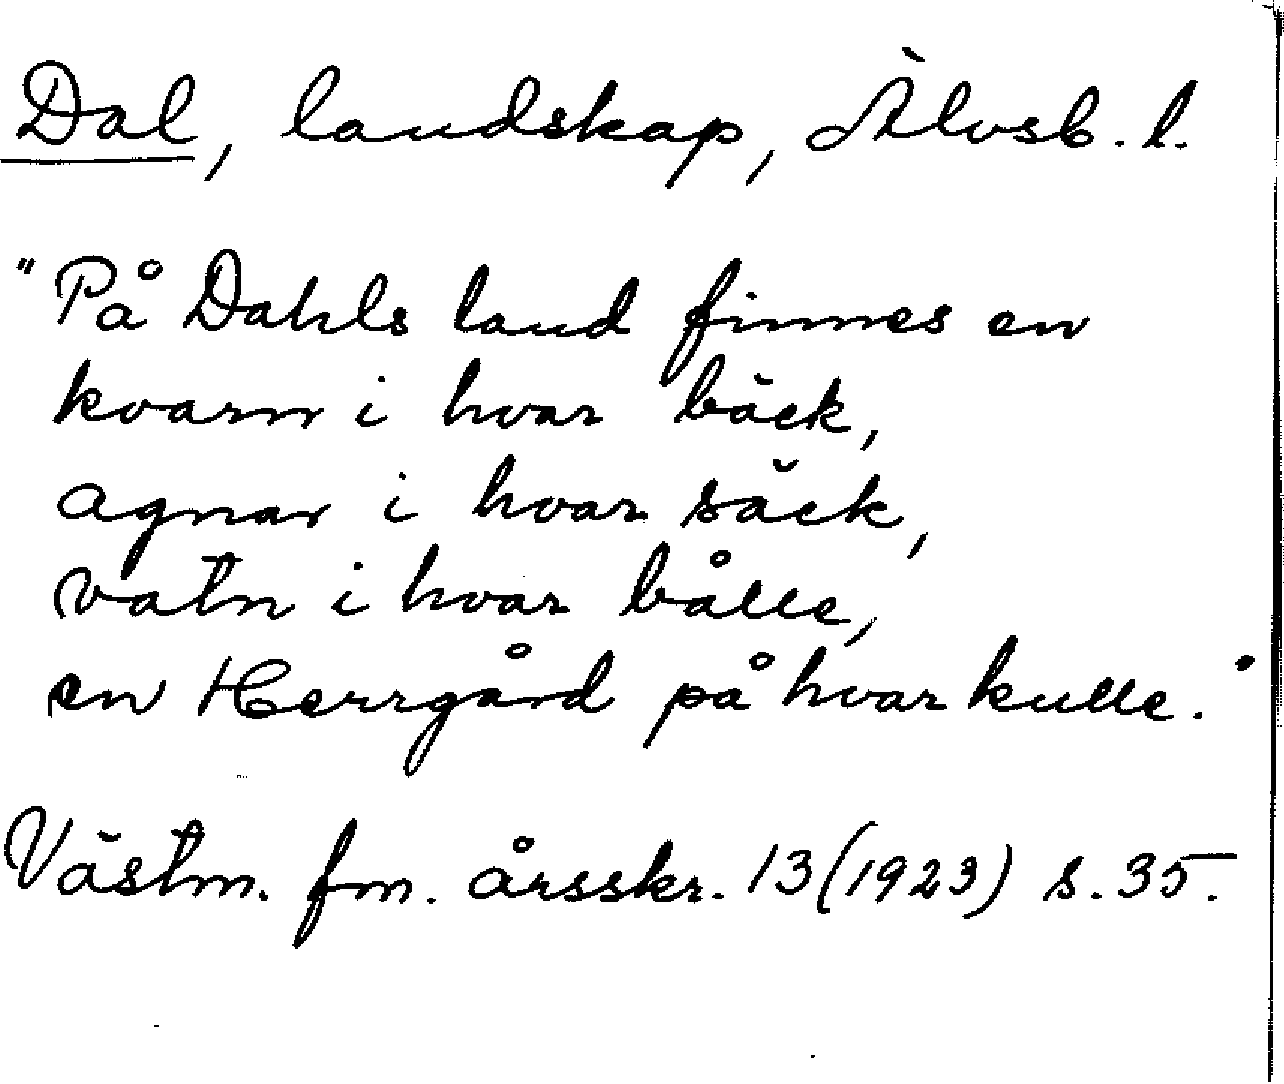 Dal, landskap, Älvsb. l.
"På Dahls land finnes en
kvarn i hvar bäck,
agnar i hvar säck,
vatn i hvar bålle,
en Herrgård på hvar kulle."
Västm. fm. årsskr. 13 (1923) s. 35.